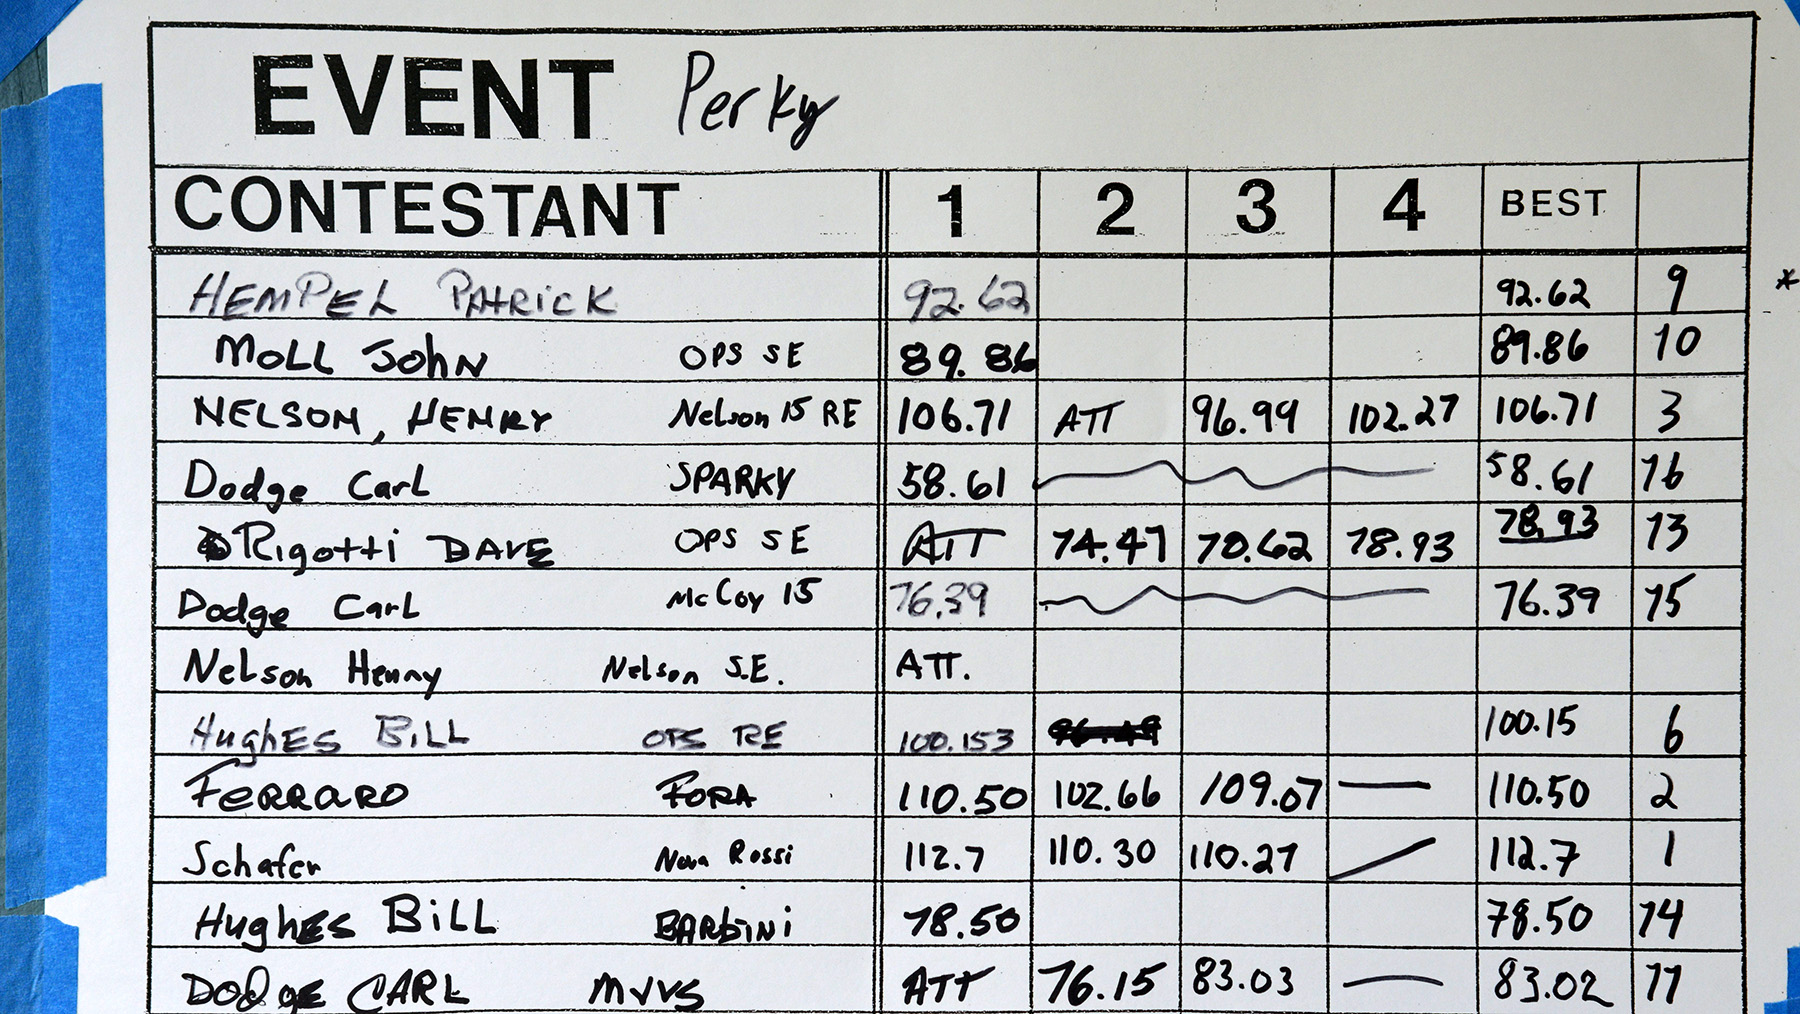 EVENT Perky
CONTESTANT 1 2 3 4 BEST
HEMPEL PATRICK 92.62 92.62 9 *
MOLL JOHN OPS SE 89.86 89.86 10
NELSON, HENRY Nelson 15 RE 106.71 ATT 96.99 102.27 106.71 3
Dodge Carl SPARKY 58.61 58.61 16
Rigotti DAVE OPS SE ATT 74.47 70.62 78.93 78.93 13
Dodge Carl McCoy 15 76.39 76.39 15
Nelson Henry Nelson S.E. ATT.
HughES BILL OPS RE 100.153 100.15 6
FERRARO FORA 110.50 102.66 109.07 — 110.50 2
Schafer Nova Rossi 112.7 110.30 110.27 112.7 1
HughES BiLL BARbiNi 78.50 78.50 14
DODGE CARL MVVS ATT 76.15 83.03 — 83.02 11